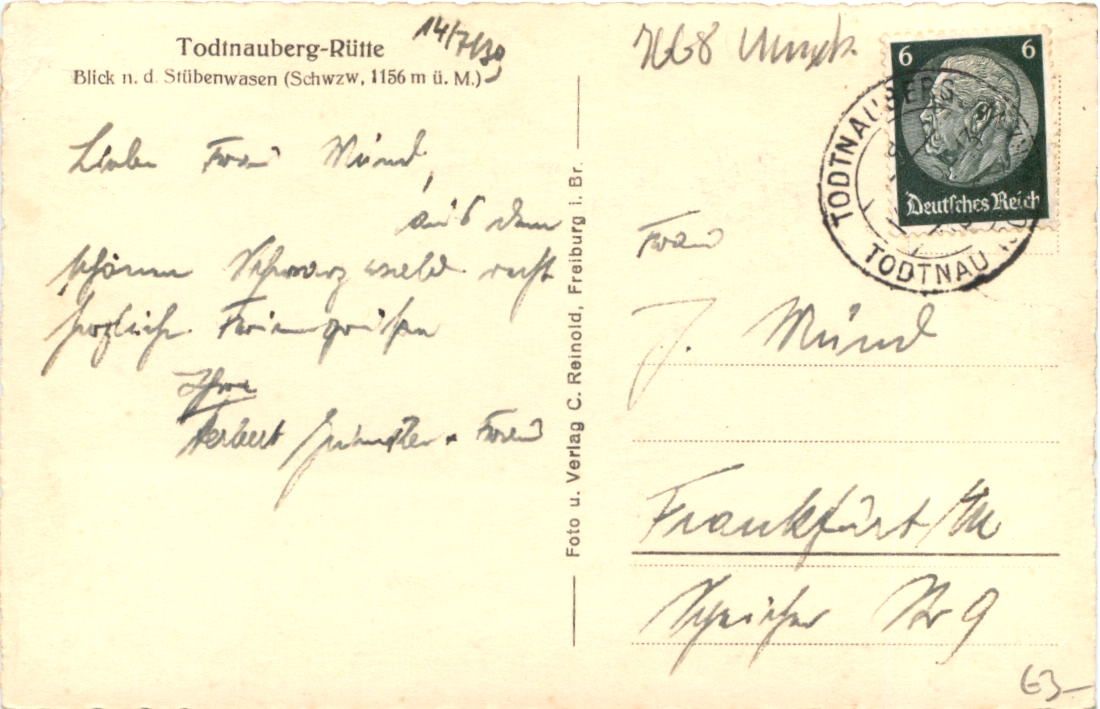 Todtnauberg-Rütte
Blick n. d. Stübenwasen (Schwzw, 1156 m ü. M.)
14/7/39
Liebe Frau Münd,
aus dem
schönen Schwarzwald recht
herzliche Feriengrüßen
Ihre
Herbert u. Frau
Foto u. Verlag C. Reinold, Freiburg i. Br.
7668
6 6
Deutsches Reich
TODTNAUBERG
TODTNAU
Frau
J. Münd
Frankfurt/M
Str 9
63-